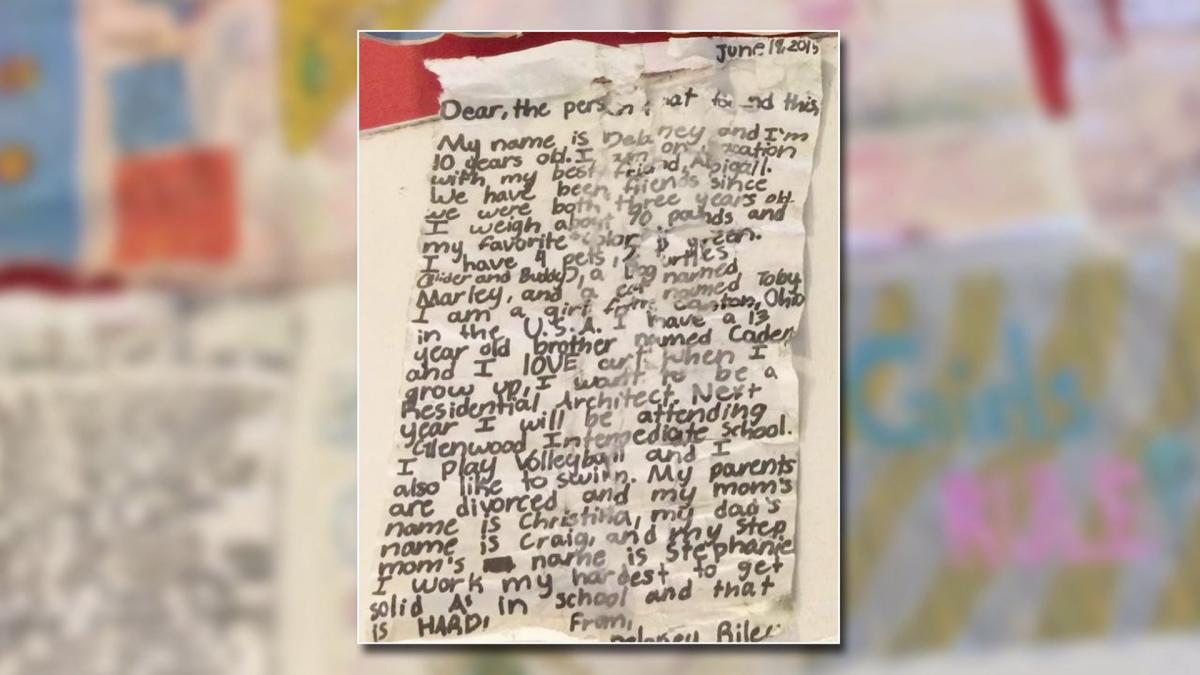 June 19, 2015
Dear, the person that found this,
My name is Delaney and I'm
10 years old. I am on vacation
with my best friend, Abigail.
We have been friends since
we were both three years old.
I weigh about 70 pounds and
my favorite color is green.
I have 4 pets, 2 turtles
and Buddy), a dog named
Marley, and a cat named Toby
I am a girl from Canton, Ohio
in the U.S.A. I have a 13
year old brother named Caden
and I lOVE art. When I
grow up, I want to be a
Residential Architect. Next
year I will be attending
Glenwood Intermediate School.
I play Volleyball and I
also like to swim. My parents
are divorced and my mom's
name is Christina, my dad's
name is Craig, and my step
mom's name is Stephanie
I work my hardest to get
solid A's in school and that
is HARD! From,
Delaney
Girls
RULE